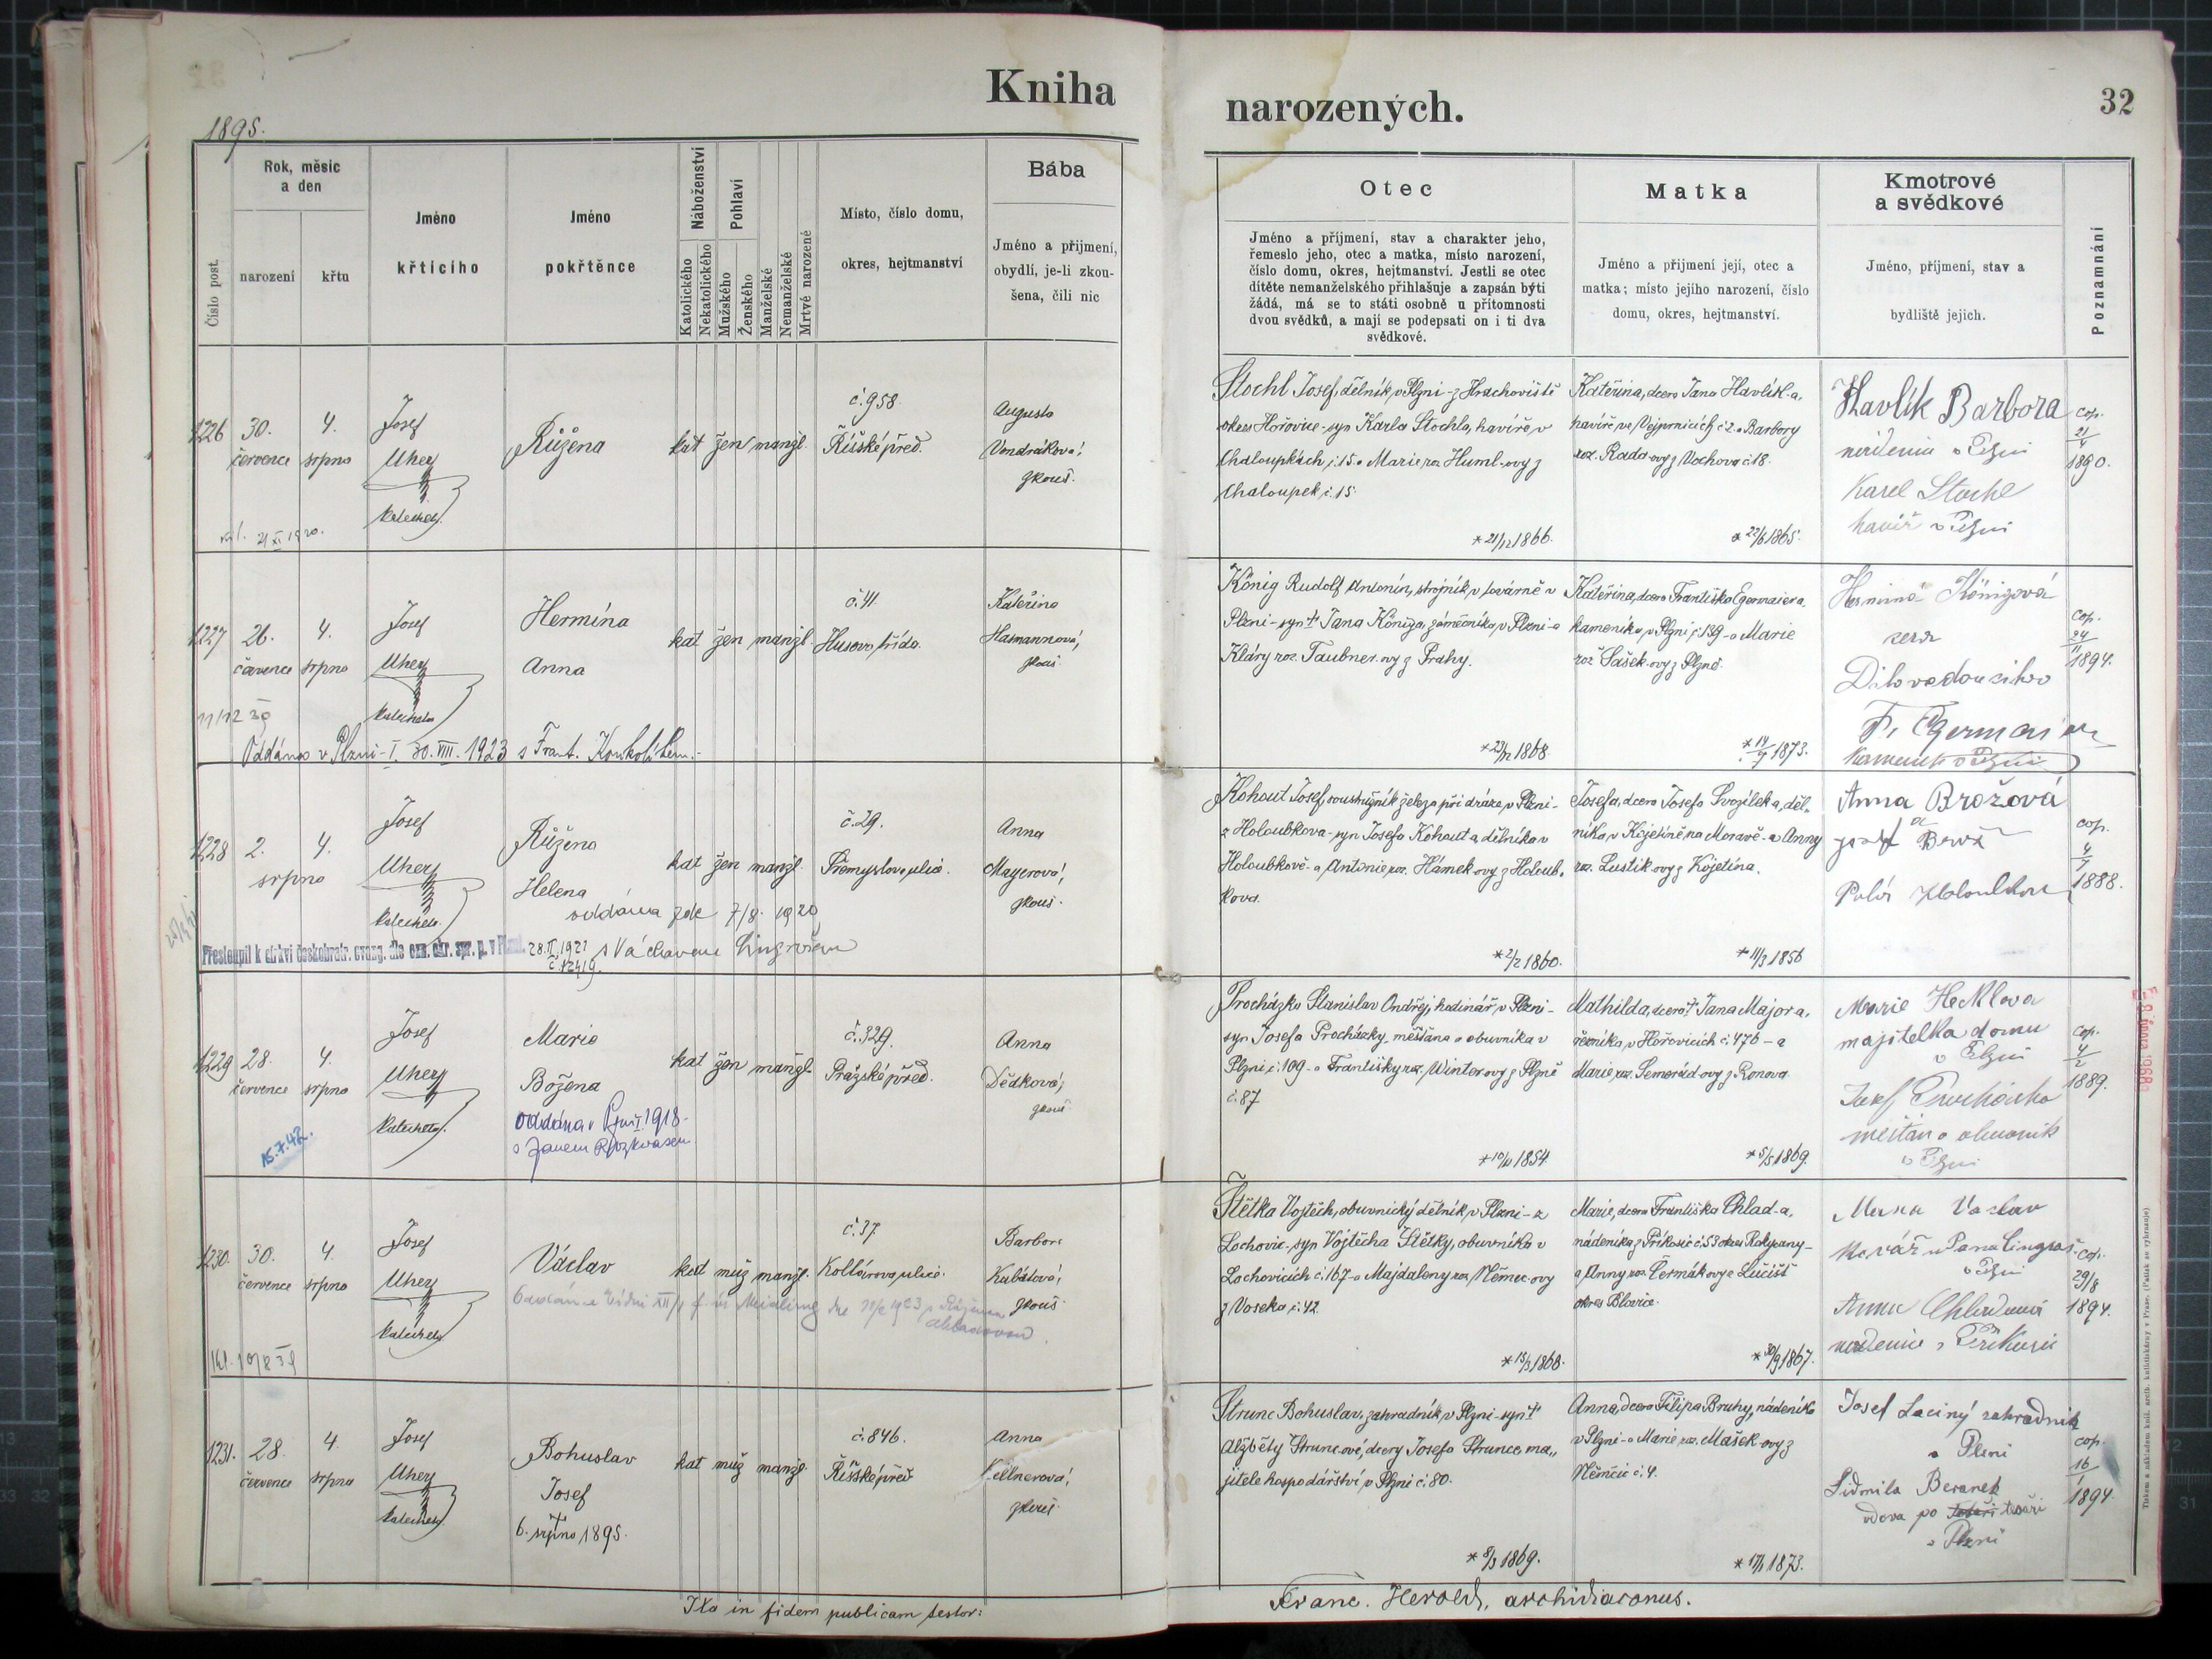 Kniha
narozených.
32
1895.
Číslo post.
Rok, měsíc
a den
narození
křtu
Jméno
křtícího
Jméno
pokřtěnce
Náboženství
Katolického
Nekatolického
Pohlaví
Mužského
Ženského
Manželské
Nemanželské
Mrtvé narozené
Místo, číslo domu,
okres, hejtmanství
Bába
Jméno a přijmení,
obydlí, je-li zkou-
šena, čili nic
Otec
Jméno a příjmení, stav a charakter jeho,
řemeslo jeho, otec a matka, místo narození,
číslo domu, okres, hejtmanství. Jestli se otec
dítěte nemanželského přihlašuje a zapsán býti
žádá, má se to státi osobně u přítomnosti
dvou svědků, a mají se podepsati on i ti dva
svědkové.
Matka
Jméno a přijmení její, otec a
matka; místo jejího narození, číslo
domu, okres, hejtmanství.
Kmotrové
a svědkové
Jméno, příjmení, stav a
bydliště jejich.
Poznamnání
1226
30.
července
4.
srpna
Josef
Uherz
katecheta
Růžena
kat žen manžl.
č. 958.
Říšské před.
Augusta
Vondráková,
zkouš.
21 XI 1920.
Stochl Josef, dělník v Plzni - z Hrachoviště
okres Hořovice - syn Karla Stochla, havíře v
Chaloupkách č. 15. a Marie roz. Huml-ovy z
Chaloupek č. 15.
* 21/12 1866.
Kateřina, dcera Jana Havlík-a,
havíře ve Vejprnicích č. 2. a Barbory
roz. Rada-ovy z Vochova č. 18.
* 22/6 1865.
Havlík Barbora
v Plzni
Karel Stochl
havíř v Plzni
cop.
21/4
1890.
1227
26.
července
4.
srpna
Josef
Uherz
katecheta
Hermína
Anna
kat žen manžl
č. 41.
Husova třída.
Kateřina
Hasmannová,
zkouš.
Oddána v Plzni - I. 30. VIII. 1923 s Frant. Konkolítem.-
König Rudolf Antonín, strojník v továrně v
Plzni - syn † Jana Königa, zámečníka v Plzni - a
Kláry roz. Taubner-ovy z Prahy.
* 23/12 1868.
Kateřina, dcera Františka Egermaier-a,
kameníka v Plzni č. 139 - a Marie
roz. Sašek-ovy z Plzně.
* 14/7 1873.
Hermina Königová
F. Egermaier
kameník v Plzni
cop.
24/11
1894.
1228
2.
srpna
4.
Josef
Uherz
katecheta
Růžena
Helena
oddána zde 7/8. 1920
s Václavem
Přestoupil k církvi českobratr. evang. dle ozn. okr. spr. p. v Plzni.
28. II. 1921
č. 12419.
kat žen manžl.
č. 29.
Přemyslova ulice.
Anna
Mayerová,
zkouš.
Kohout Josef, soustružník železa při dráze v Plzni -
z Holoubkova - syn Josefa Kohouta dělníka v
Holoubkově - a Antonie roz. Hámek-ovy z Holoub-
kova.
* 2/2 1860.
Josefa, dcera Josefa Svozílek-a, děl-
níka v Kojetíně na Moravě - a Anny
roz. Lustik-ovy z Kojetína.
* 11/3 1856
Anna Brožová
cop.
4/7
1888.
1229
28.
července
4.
srpna
Josef
Uherz
katecheta.
Marie
Božena
oddána v Plzni I. 1918.
s Janem Rozkvasem
15.7.42.
kat žen manžl.
č. 329.
Pražské před.
Anna
Dědková,
zkouš.
Procházka Stanislav Ondřej, hodinář v Plzni -
syn Josefa Procházky, měšťana a obuvníka v
Plzni č. 109 - a Františky roz. Winter-ovy z Plzně
č. 87
* 10/11 1854.
Mathilda, dcera † Jana Major-a,
řezníka v Hořovicích č. 476 - a
Marie roz. Semerád-ovy z Ronova.
* 5/5 1869.
Marie Hecklova
majitelka domu
v Plzni
Josef Procházka
měšťan a obuvník
v Plzni
cop.
4/2
1889.
1230.
30.
července
4.
srpna
Josef
Uherz
katecheta
Václav
kat muž manžl.
č. 37.
Kollárova ulice.
Barbora
Kubátová,
zkouš.
Štětka Vojtěch, obuvnický dělník v Plzni - z
Lochovic - syn Vojtěcha Štětky, obuvníka v
Lochovicích č. 167 - a Majdaleny roz. Němec-ovy
z Voseka č. 42.
* 15/3 1868.
Marie, dcera Františka Chlad-a,
nádeníka z Příkosic č. 53 okres Rokycany -
a Anny roz. Čermák-ovy z Lučišť
okres Blovice.
* 30/9 1867.
Václav
v Plzni
Anna Chladová
cop.
29/8
1894.
1231.
28.
července
4.
srpna
Josef
Uherz
katecheta
Bohuslav
Josef
† 6. srpna 1895.
kat muž manžl.
č. 846.
Říšské před
Anna
Kellnerová,
zkouš.
Strunc Bohuslav, zahradník v Plzni - syn †
Alžběty Strunc-ové, dcery Josefa Strunce, ma-
jitele hospodářství v Plzni č. 80.
* 8/3 1869.
Anna, dcera Filipa Bruhy, nádeníka
v Plzni - a Marie roz. Mašek-ovy z
Němčic č. 4.
* 17/1 1873.
Josef Laciný zahradník
v Plzni
Lidmila Beranek
vdova po tesaři
v Plzni
cop.
16/1
1894.
Ita in fidem publicam testor:
Franc. Herold, archidiaconus.